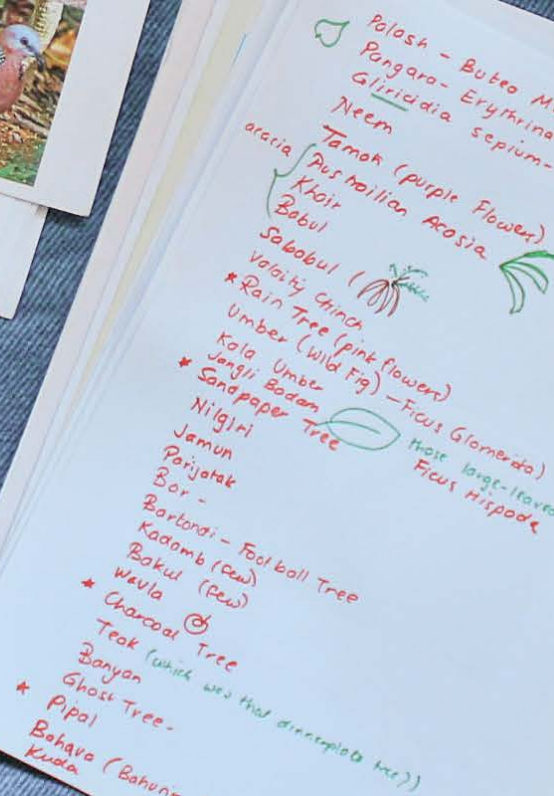 Palash - Butea M
Pangara - Erythrina
Gliricidia sepium -
Neem
Taman (purple Flowers)
acacia
Australian Acasia
Khair
Babul
Sobabul (
Valaity Chinch
* Rain Tree (pink flowers)
Umber (Wild Fig) - Ficus Glomerata)
Kala Umber
Jangli Badam
* Sandpaper Tree those large-leaved
Ficus Hispada
Nilgiri
Jamun
Parijatak
Bor -
Bartondi - Foot ball Tree
Kadamb (few)
Bakul (few)
Wavla
* Charcoal Tree
Teak (which was that dinnerplate tree?)
Banyan
Ghost Tree -
* Pipal
Bahava (Bahuni
Kuda